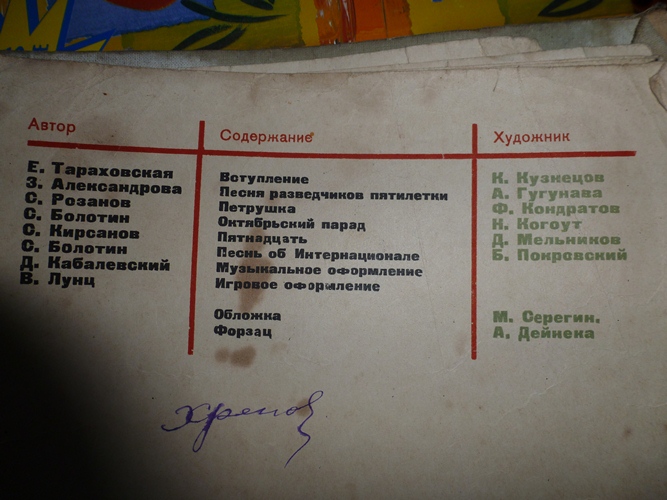 Автор Содержание Художник
Е. Тараховская Вступление К. Кузнецов
З. Александрова Песня разведчиков пятилетки А. Гугунава
С. Розанов Петрушка Ф. Кондратов
С. Болотин Октябрьский парад Н. Когоут
С. Кирсанов Пятнадцать Д. Мельников
С. Болотин Песнь об Интернационале Б. Покровский
Д. Кабалевский Музыкальное оформление
В. Лунц Игровое оформление
Обложка М. Серегин.
Форзац А. Дейнека.